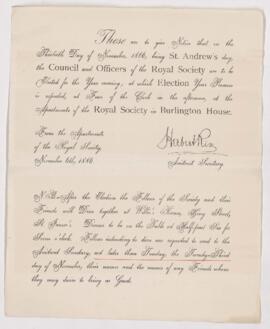 These are to give Notice that on the
Thirtieth Day of November, 1886, being St. Andrew's day,
the Council and Officers of the Royal Society are to be
Elected for the Year ensuing, at which Election Your Presence
is expected, at Four of the Clock in the afternoon, at the
Apartments of the Royal Society in Burlington House.
From the Apartments
of the Royal Society,
November 6th, 1886.
Herbert Rix
Assistant Secretary
N.B.—After the Election the Fellows of the Society and their
Friends will Dine together at Willis's Rooms, King Street,
St. James's. Dinner to be on the Table at Half-past Six for
Seven o'clock. Fellows intending to dine are requested to send to the
Assistant Secretary, not later than Tuesday, the Twenty-Third
day of November, their names and the names of any Friends whom
they may desire to bring as Guests.